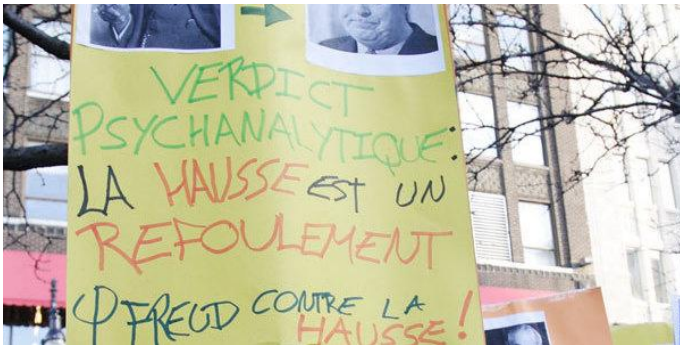 VERDICT
PSYCHANALYTIQUE:
LA HAUSSE EST UN
REFOULEMENT
φ FREUD CONTRE LA
HAUSSE!